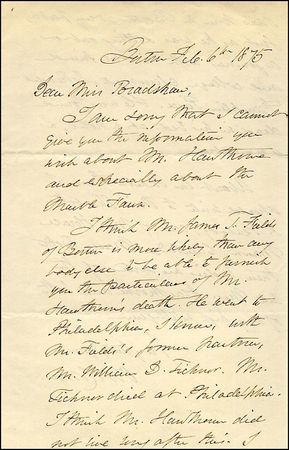 Boston Feb. 6th 1875
Dear Miss Bradshaw,
I am sorry that I cannot
give you the information you
wish about Mr. Hawthorne
and especially about the
Marble Faun.
I think Mr. James T. Fields
of Boston is more likely than any
body else to be able to furnish
you the particulars of Mr.
Hawthorne's death. He went to
Philadelphia, I know, with
Mr. Fields's former partner,
Mr. William D. Ticknor. Mr.
Ticknor died at Philadelphia.
I think Mr. Hawthorne did
not live long after this. I